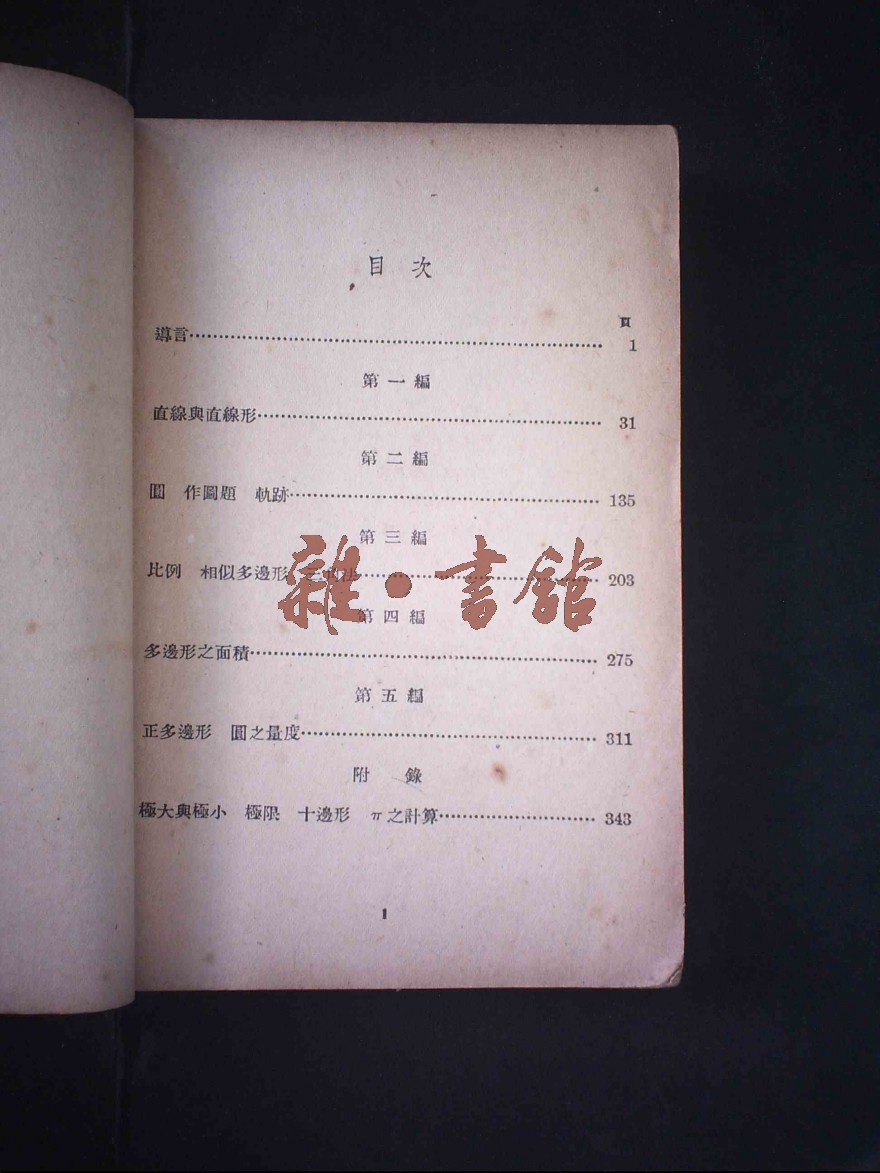 目次
頁
導言 1
第一編
直線與直線形 31
第二編
圓 作圖題 軌跡 135
第三編
比例 相似多邊形 203
雜・書館
第四編
多邊形之面積 275
第五編
正多邊形 圓之量度 311
附錄
極大與極小 極限 十邊形 π之計算 343
1